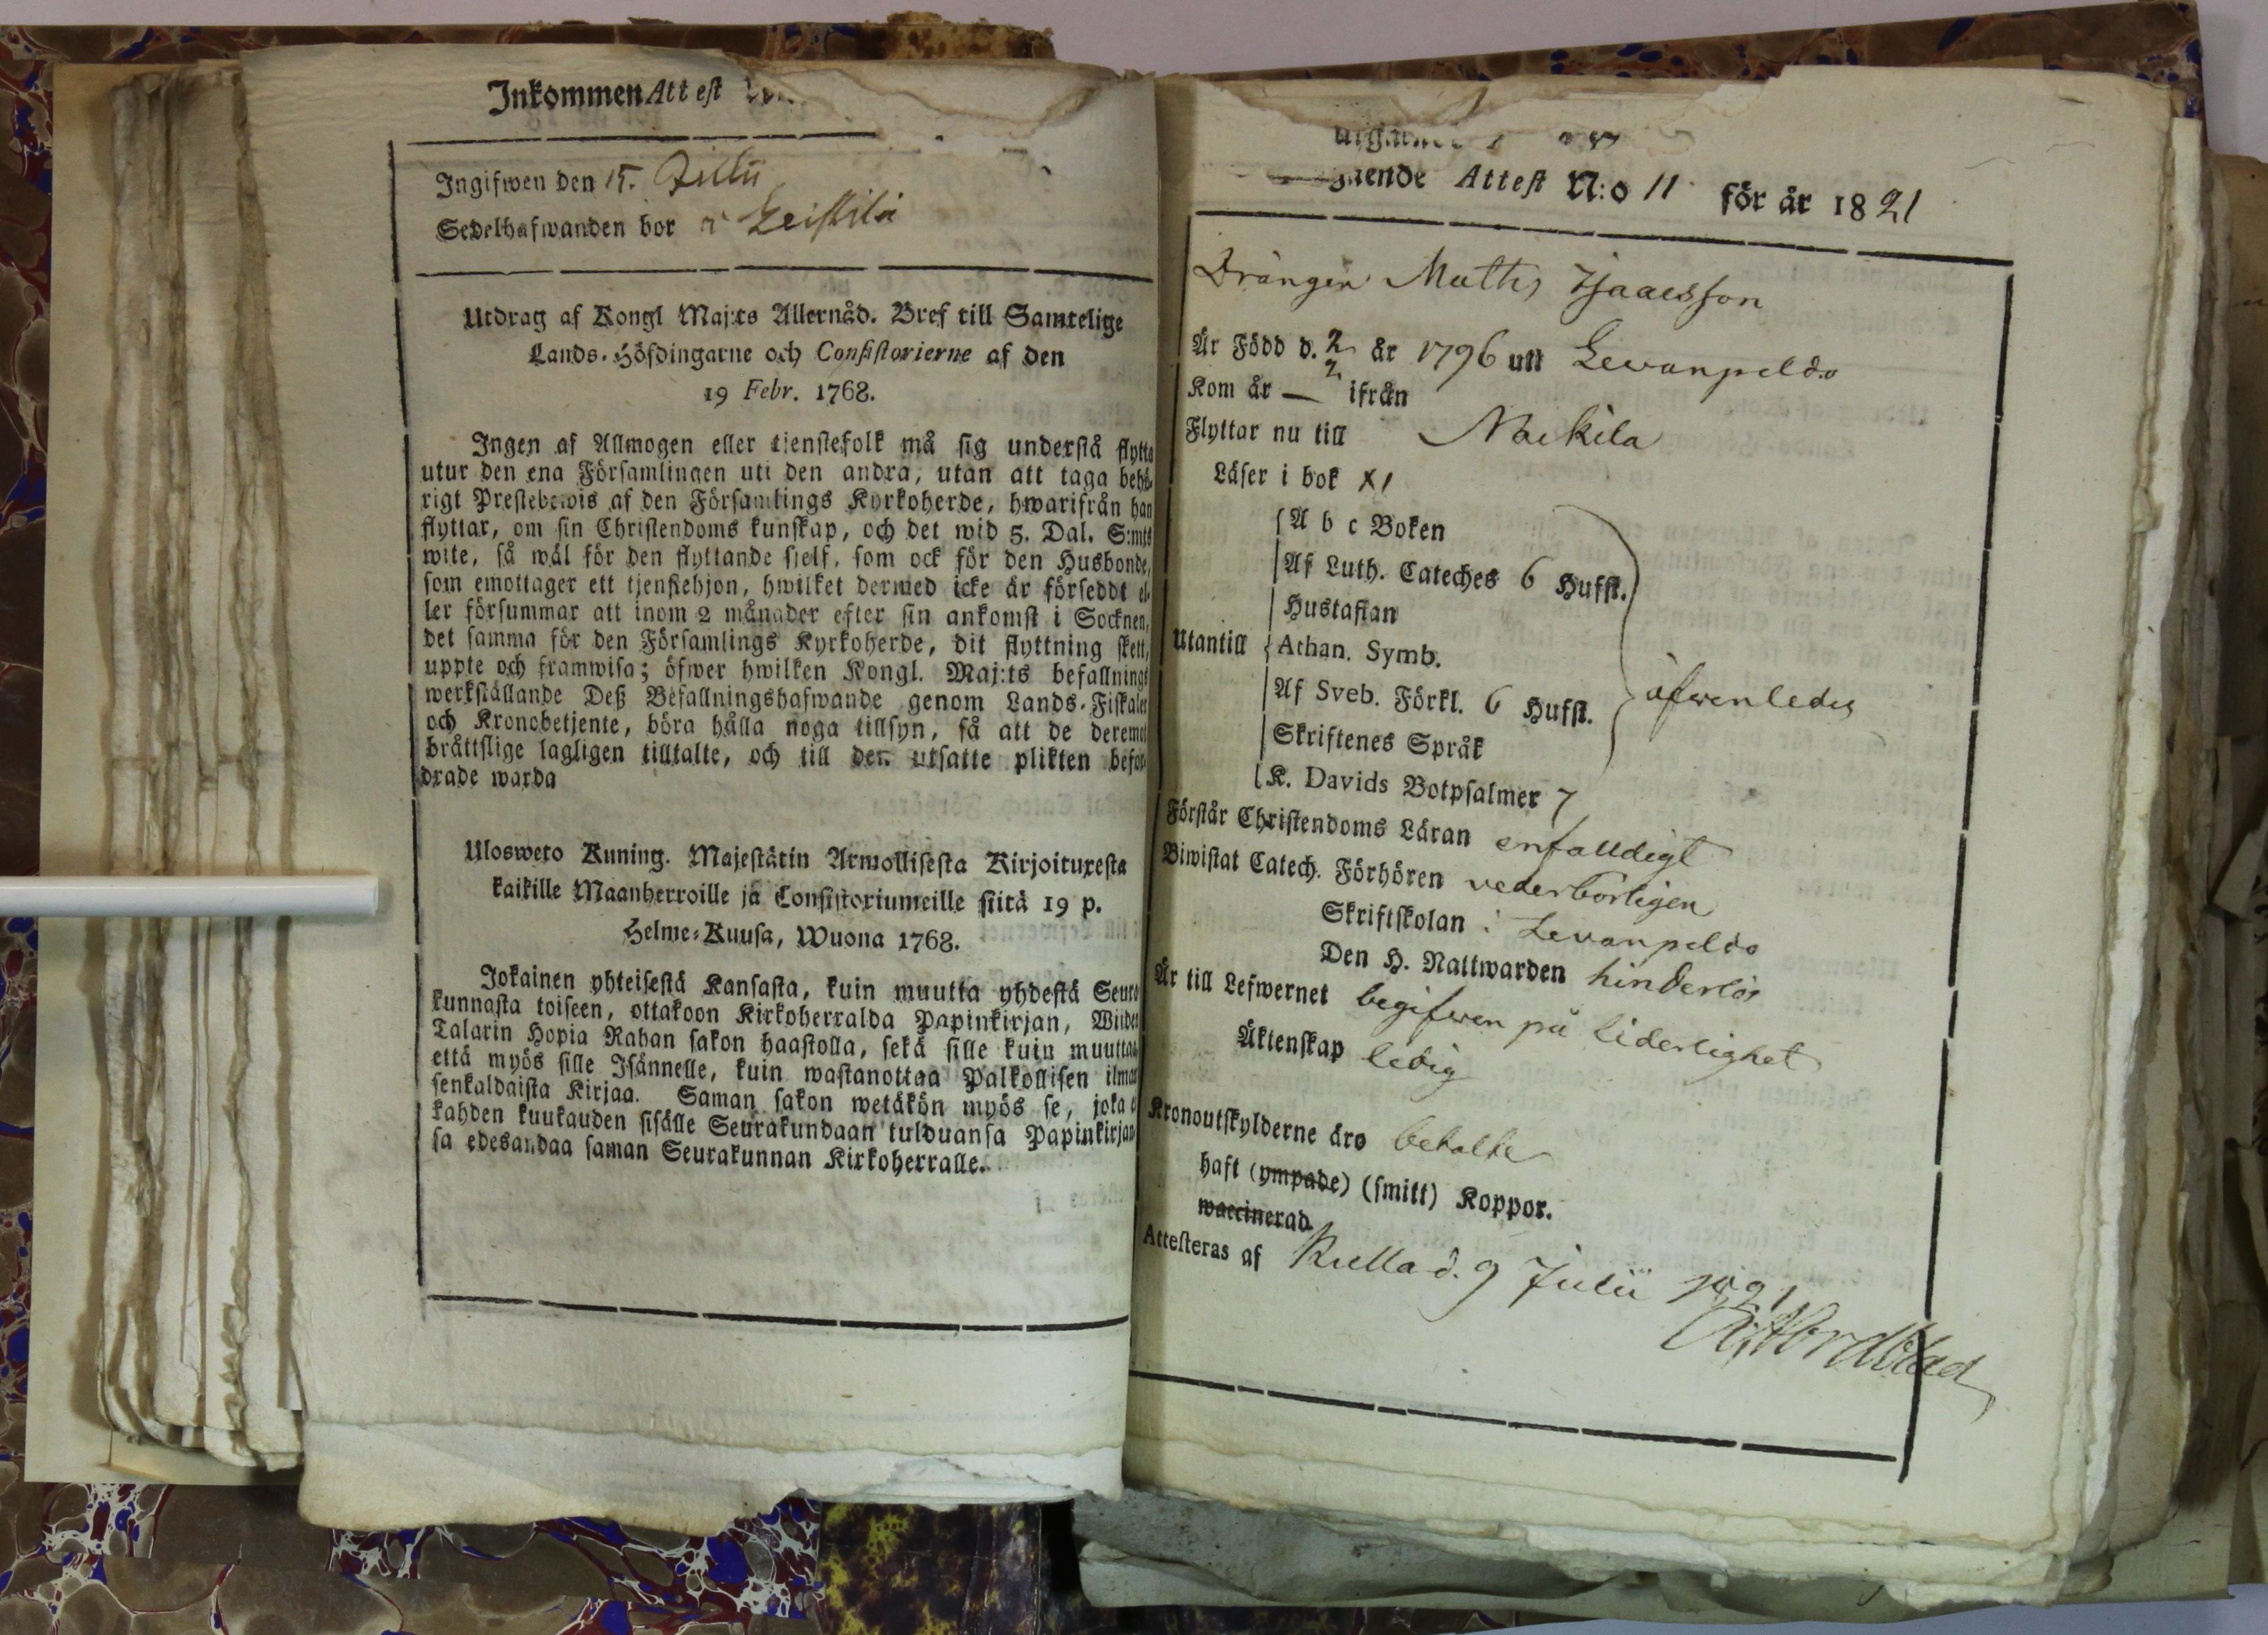 Inkommen Attest
Ingifwen den 15. Julii
Sedelhafwanden bor i Leistilä
Utdrag af Kongl Maj:ts Allernåd. Bref till Samtelige
Lands-Höfdingarne och Consistorierne af den
19 Febr. 1768.
Ingen af Allmogen eller tjenstefolk må sig understå flytta
utur den ena Församlingen uti den andra, utan att taga behö-
rigt Prestebewis af den Församlings Kyrkoherde, hwarifrån han
flyttar, om sin Christendoms kunskap, och det wid 5. Dal. S:mts
wite, så wäl för den flyttande sjelf, som ock för den Husbonde,
som emottager ett tjenstehjon, hwilket dermed icke är förseddt el-
ler försummar att inom 2 månader efter sin ankomst i Socknen,
det samma för den Församlings Kyrkoherde, dit flyttning skett,
uppte och framwisa; öfwer hwilken Kongl. Maj:ts befallnings
werkställande Deß Befallningshafwande genom Lands-Fiskaler
och Kronobetjente, böra hålla noga tillsyn, så att de deremot
bråttslige lagligen tilltalte, och till den utsatte plikten befor-
drade warda
Ulosweto Kuning. Majestätin Armollisesta Kirjoituxesta
kaikille Maanherroille ja Consistoriumeille siitä 19 p.
Helme-Kuusa, Wuona 1768.
Jokainen yhteisestä Kansasta, kuin muutta yhdestä Seura
kunnasta toiseen, ottakoon Kirkoherralda Papinkirjan, Wiiden
Talarin Hopia Rahan sakon haastolla, sekä sille kuin muuttaa
että myös sille Isännelle, kuin wastanottaa Palkollisen ilman
senkaldaista Kirjaa. Saman sakon wetäkön myös se, joka ei
kahden kuukauden sisälle Seurakundaan tulduansa Papinkirjan-
sa edesandaa saman Seurakunnan Kirkoherralle.
gående Attest N:o 11 för år 1821
Drängen Matts Isaacsson
Är Född d. 2/2 år 1796 uti Levanpeldo
Kom år — ifrån
Flyttar nu till Nackila
Läser i bok x1
A b c Boken
Af Luth. Cateches 6 Hufst.
Hustaflan
Utantill Athan. Symb.
Af Sveb. Förkl. 6 Hufst. äfvenledes
Skriftenes Språk
K. Davids Botpsalmer 7
Förstår Christendoms Läran enfalldigt
Biwistat Catech. Förhören vederbörligen
Skriftskolan i Levanpeldo
Den H. Nattwarden hinderlös
Är till Lefwernet begifven på liderlighet
Äktenskap ledig
Kronoutskylderne äro betalte
haft (ympade) (smitt) Koppor.
waccinerad.
Attesteras af Kulla d. 9 Julii 1821